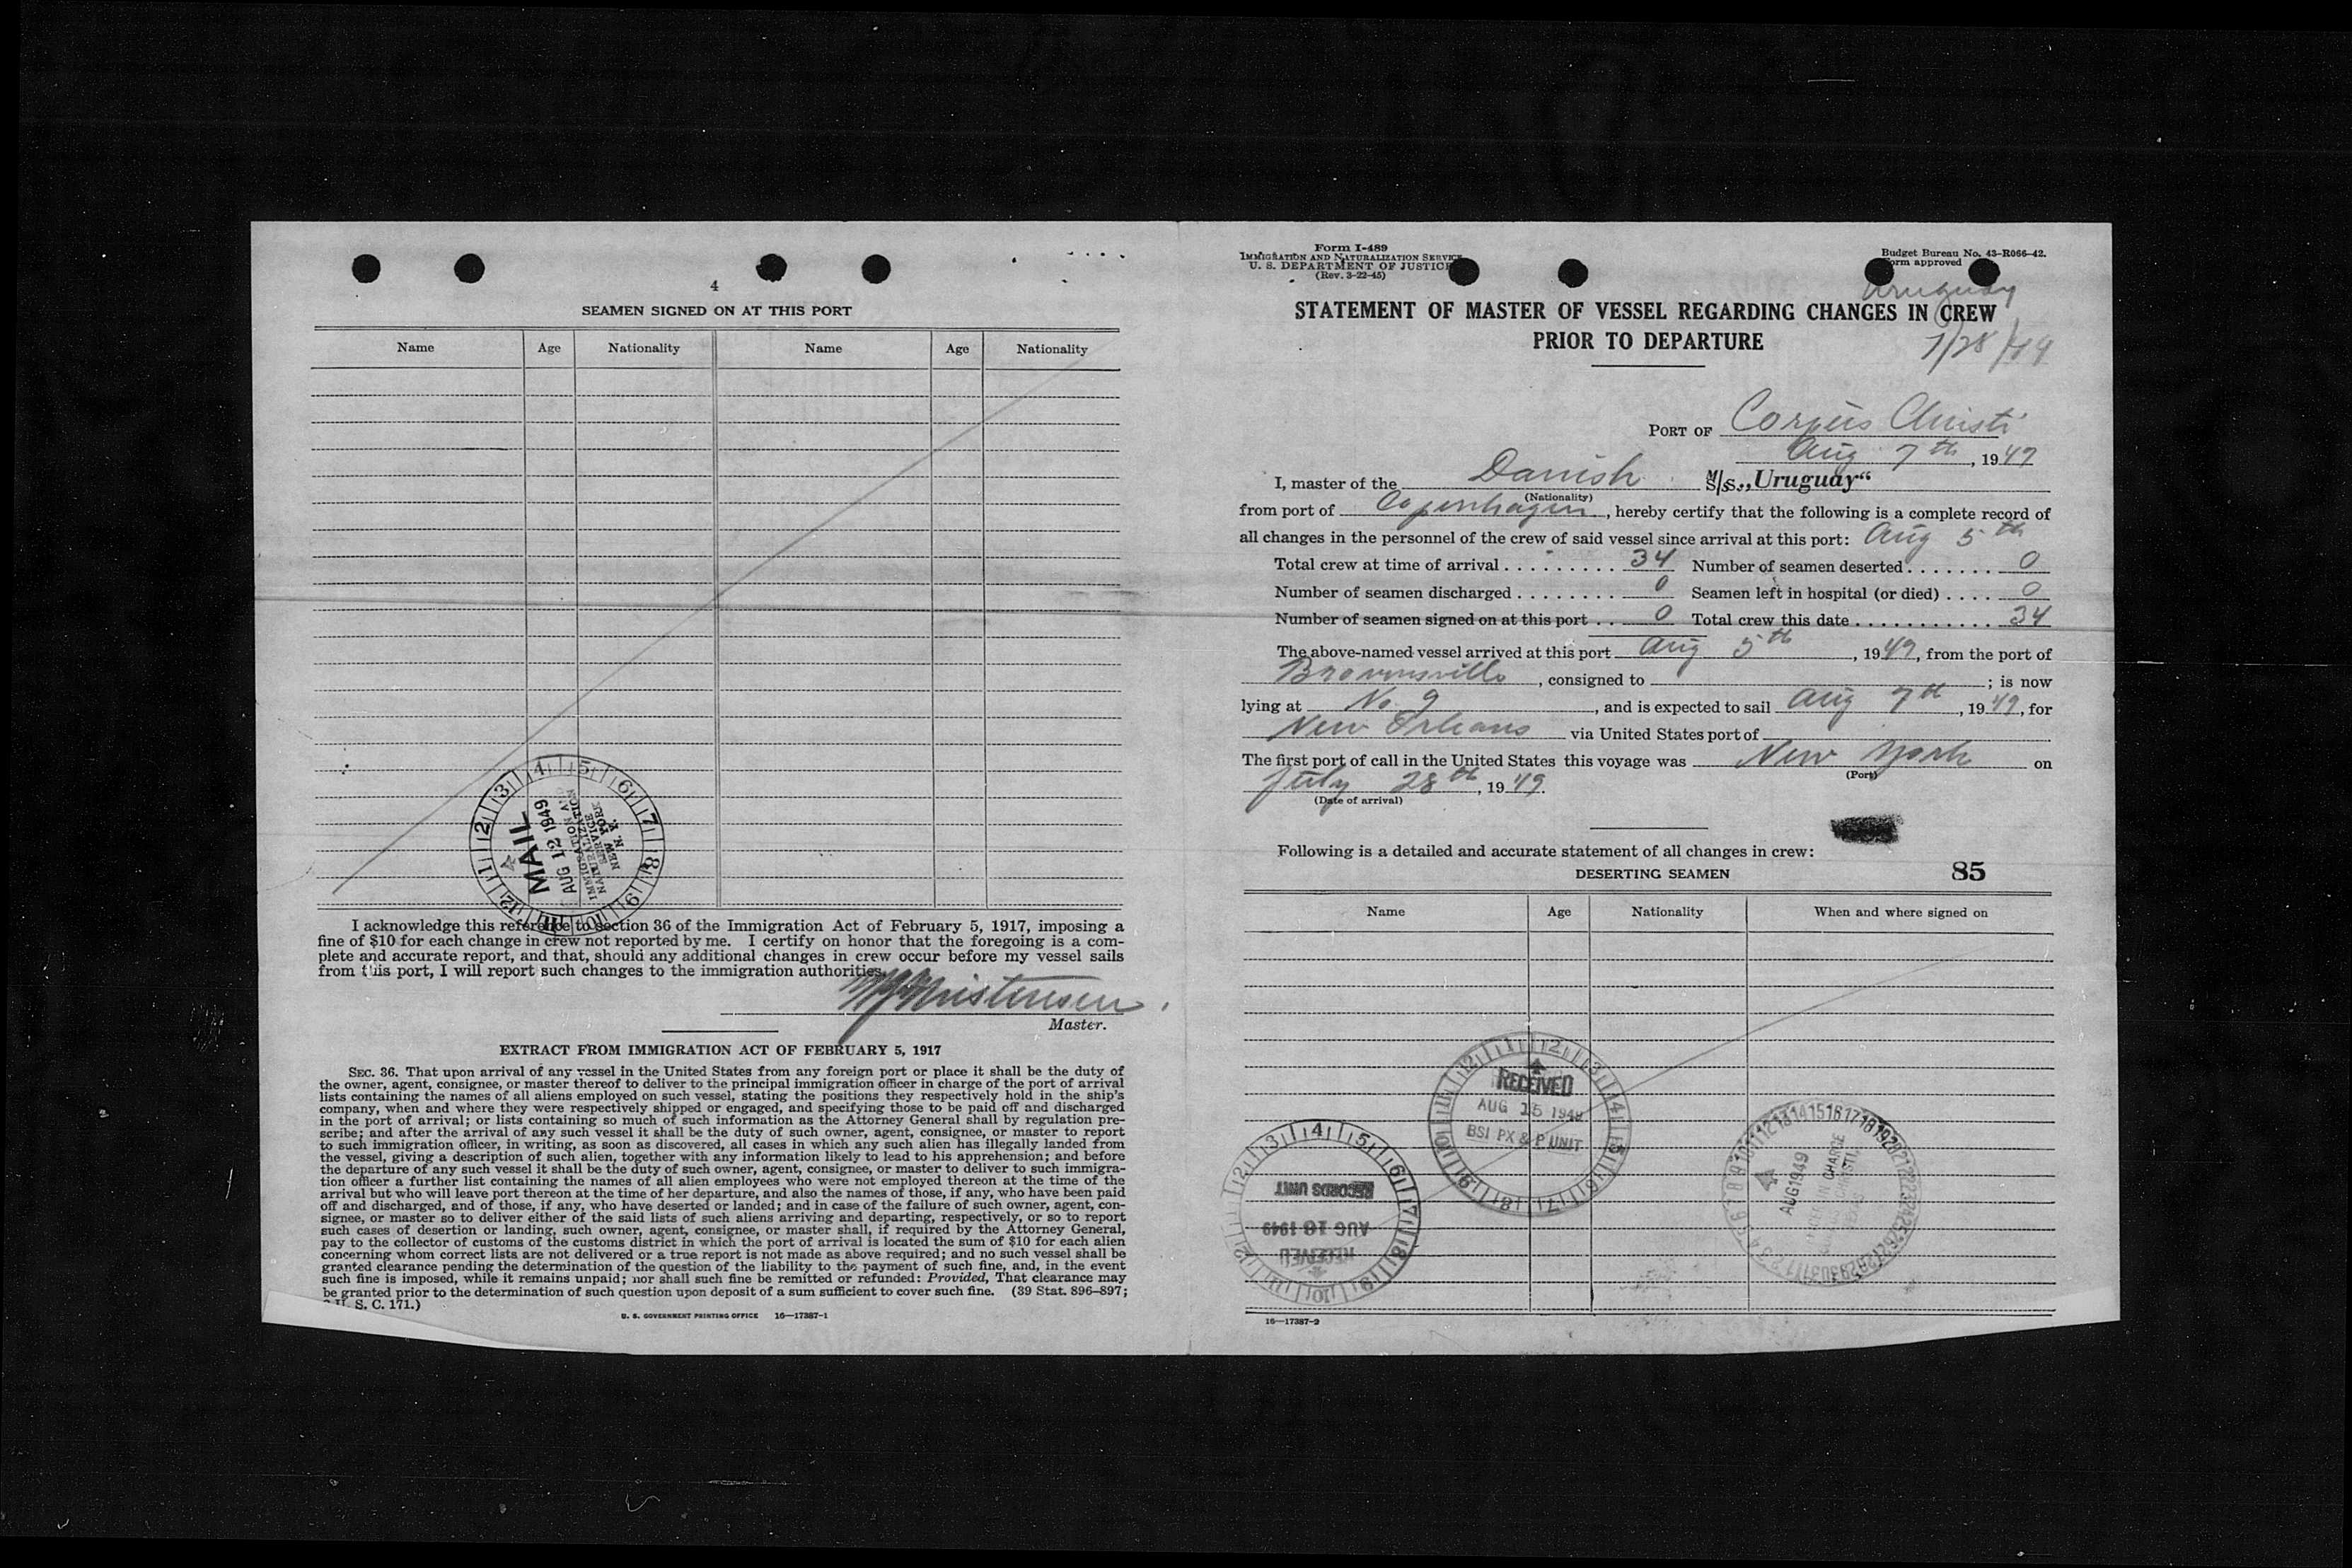 4
SEAMEN SIGNED ON AT THIS PORT
Name Age Nationality Name Age Nationality
MAIL
AUG 12 1949
IMMIGRATION AND
NATURALIZATION
SERVICE
NEW YORK
N. Y.
I acknowledge this reference to section 36 of the Immigration Act of February 5, 1917, imposing a
fine of $10 for each change in crew not reported by me. I certify on honor that the foregoing is a com-
plete and accurate report, and that, should any additional changes in crew occur before my vessel sails
from this port, I will report such changes to the immigration authorities.
Christensen
Master.
EXTRACT FROM IMMIGRATION ACT OF FEBRUARY 5, 1917
SEC. 36. That upon arrival of any vessel in the United States from any foreign port or place it shall be the duty of
the owner, agent, consignee, or master thereof to deliver to the principal immigration officer in charge of the port of arrival
lists containing the names of all aliens employed on such vessel, stating the positions they respectively hold in the ship's
company, when and where they were respectively shipped or engaged, and specifying those to be paid off and discharged
in the port of arrival; or lists containing so much of such information as the Attorney General shall by regulation pre-
scribe; and after the arrival of any such vessel it shall be the duty of such owner, agent, consignee, or master to report
to such immigration officer, in writing, as soon as discovered, all cases in which any such alien has illegally landed from
the vessel, giving a description of such alien, together with any information likely to lead to his apprehension; and before
the departure of any such vessel it shall be the duty of such owner, agent, consignee, or master to deliver to such immigra-
tion officer a further list containing the names of all alien employees who were not employed thereon at the time of the
arrival but who will leave port thereon at the time of her departure, and also the names of those, if any, who have been paid
off and discharged, and of those, if any, who have deserted or landed; and in case of the failure of such owner, agent, con-
signee, or master so to deliver either of the said lists of such aliens arriving and departing, respectively, or so to report
such cases of desertion or landing, such owner, agent, consignee, or master shall, if required by the Attorney General,
pay to the collector of customs of the customs district in which the port of arrival is located the sum of $10 for each alien
concerning whom correct lists are not delivered or a true report is not made as above required; and no such vessel shall be
granted clearance pending the determination of the question of the liability to the payment of such fine, and, in the event
such fine is imposed, while it remains unpaid; nor shall such fine be remitted or refunded: Provided, That clearance may
be granted prior to the determination of such question upon deposit of a sum sufficient to cover such fine. (39 Stat. 896–897;
U. S. C. 171.)
U. S. GOVERNMENT PRINTING OFFICE 16—17387-1
Form I-489
IMMIGRATION AND NATURALIZATION SERVICE
U. S. DEPARTMENT OF JUSTICE
(Rev. 3-22-45)
Budget Bureau No. 43-R066-42.
Form approved
Uruguay
STATEMENT OF MASTER OF VESSEL REGARDING CHANGES IN CREW
PRIOR TO DEPARTURE
7/28/49
PORT OF Corpus Christi
Aug 7th, 1949
I, master of the Danish M/S. „Uruguay“
(Nationality)
from port of Copenhagen, hereby certify that the following is a complete record of
all changes in the personnel of the crew of said vessel since arrival at this port: Aug 5th
Total crew at time of arrival 34 Number of seamen deserted 0
Number of seamen discharged 0 Seamen left in hospital (or died) 0
Number of seamen signed on at this port 0 Total crew this date 34
The above-named vessel arrived at this port Aug 5th, 1949, from the port of
Brownsville, consigned to ; is now
lying at No. 9, and is expected to sail Aug 7th, 1949, for
New Orleans via United States port of
The first port of call in the United States this voyage was New York on
(Port)
July 28th, 1949.
(Date of arrival)
Following is a detailed and accurate statement of all changes in crew:
85
DESERTING SEAMEN
Name Age Nationality When and where signed on
RECEIVED
AUG 15 1949
BSI PX & P UNIT
RECORDS UNIT
AUG 16 1949
RECEIVED
AUG 1949
IN CHARGE
CHRISTI,
TEXAS
16—17387-2